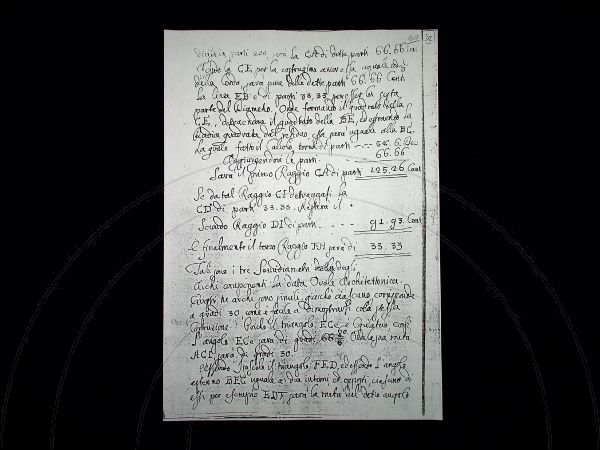 60 32
parti 200, sarà la CA di dette parti 66.66 Cen
la CE, per la costruzione ancor essa uguale
della Corda, sarà pure delle dette parti 66.66 Cent.
La linea EB è di parti 33.33 per esser la sesta
parte del Diametro. Onde formando il quadrato della
CE, detraendone il quadrato della BE, ed estraendo la
Radice quadrata dal residuo, essa sarà uguale alla BC.
La quale fatto il Calcolo torna di parti
Aggiungendovi le parti 66.66
Sarà il primo Raggio CA di parti 125.26 Cent
Se da tal Raggio CI detraggasi la
CD di parti 33.33. Resterà il
Secondo Raggio DI di parti 91.93. Cent
E finalmente il terzo Raggio EH sarà di 33.33
Tali sono i tre Semidiametri degli
Archi componenti la data Ovale Architettonica
Archi sono simili, giacchè ciascuno corrisponde
a gradi 30 come è facile a dimostrarsi colla stessa
costruzione. Poichè il triangolo ECe è equilatero, così
l'angolo ECe sarà di gradi 60 la metà
ACI sarà di gradi 30.
Essendo Isoscele il triangolo FED, ed essendo l'angolo
esterno BEC uguale ai due interni ed opposti, ciascuno di
essi per esempio EDF sarà la metà del detto angolo